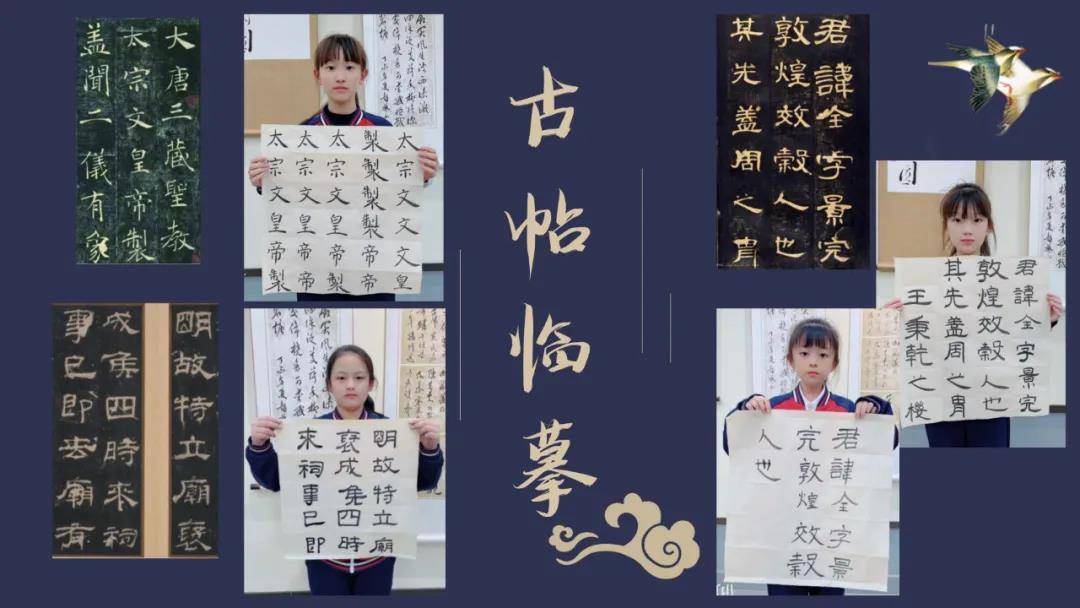 大唐三藏聖教
太宗文皇帝製
盖聞二儀有象
太宗文文文皇
製製製製帝帝
太宗文皇帝製
太宗文皇帝製
太宗文皇帝製
明故特立廟褒
成侯四時來祠
事已即去廟有
明故特立廟
褒成侯四時
來祠事已即
古帖临摹
君諱全字景完
敦煌效穀人也
其先蓋周之胄
圓
君諱全字景完
敦煌效穀人也
其先蓋周之胄
王秉乾之機
君諱全字景
完敦煌效穀
人也